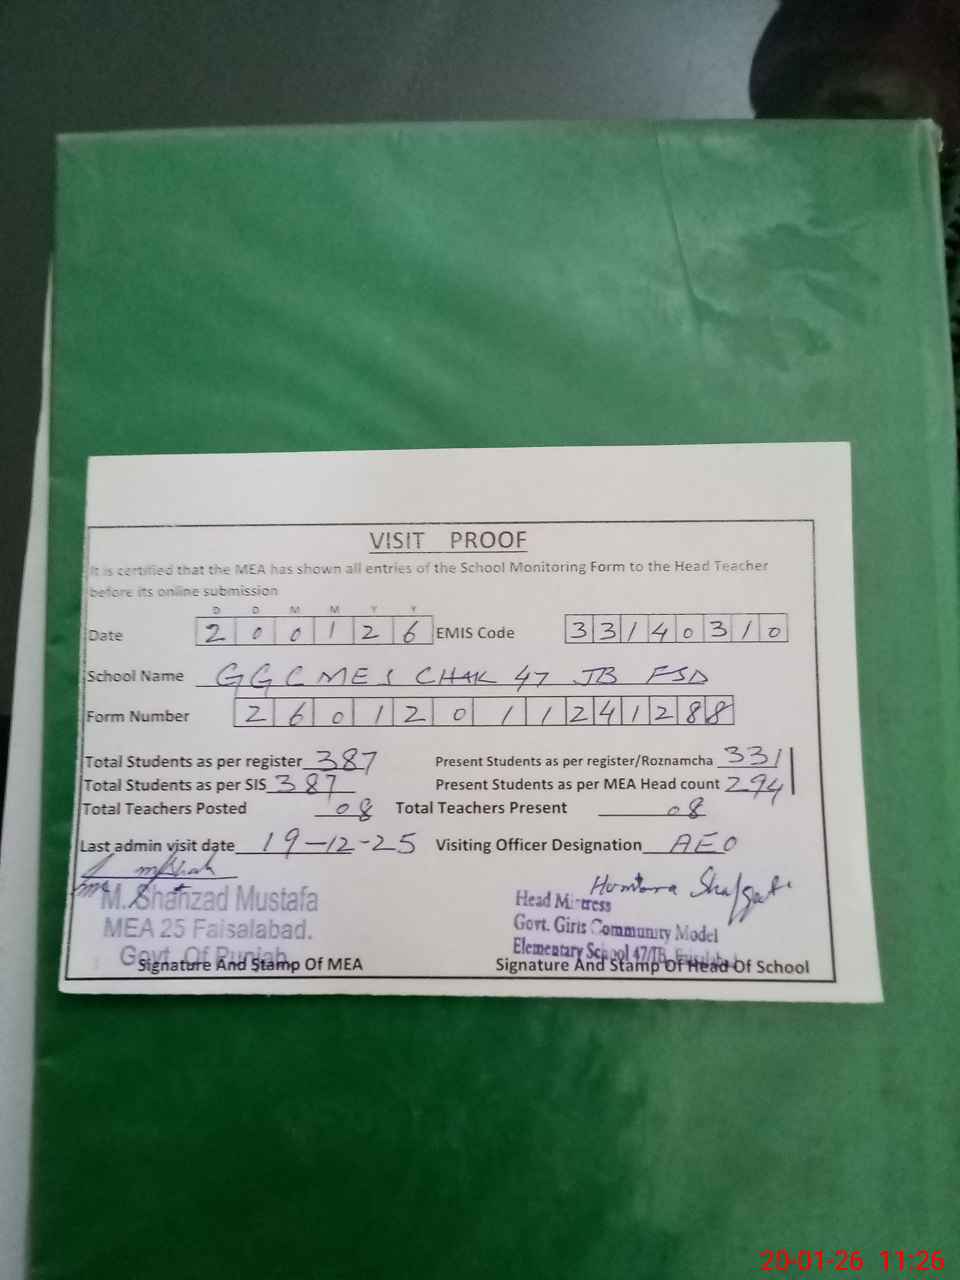 VISIT PROOF
It is certified that the MEA has shown all entries of the School Monitoring Form to the Head Teacher
before its online submission
D D M M Y Y
Date 2 0 0 1 2 6 EMIS Code 3 3 1 4 0 3 1 0
School Name GGCMES CHAK 47 JB FSD
Form Number 2 6 0 1 2 0 1 1 2 4 1 2 8 8
Total Students as per register 387 Present Students as per register/Roznamcha 331
Total Students as per SIS 387 Present Students as per MEA Head count 294
Total Teachers Posted 08 Total Teachers Present 08
Last admin visit date 19-12-25 Visiting Officer Designation AEO
M. Shahzad Mustafa
MEA 25 Faisalabad.
Govt. Of Punjab
Signature And Stamp Of MEA
Humaira Shafqat
Head Mistress
Govt. Girls Community Model
Elementary School 47/JB, Faisalabad
Signature And Stamp Of Head Of School
20-01-26 11:26